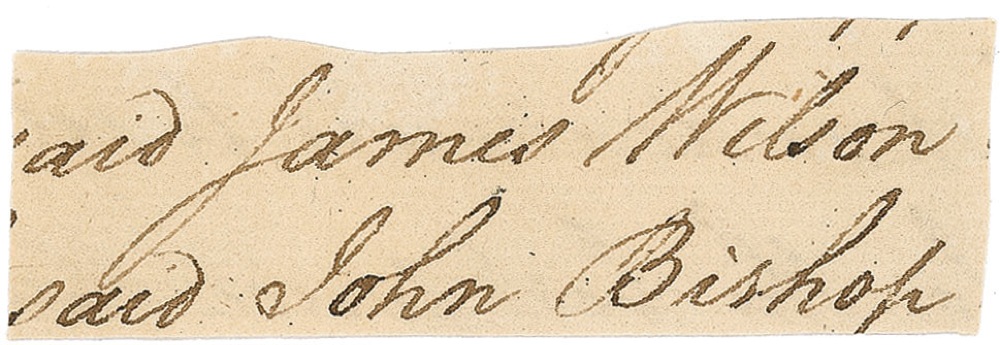 said James Wilson
said John Bishop